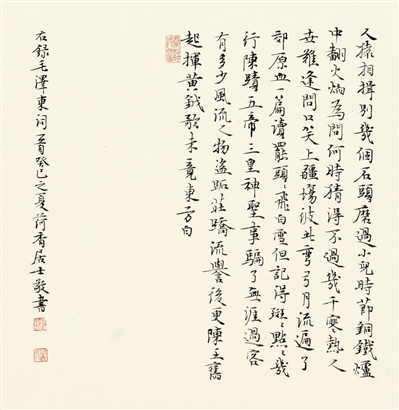 人猿相揖別幾個石頭磨過小兒時節銅鐵爐
中翻火焰為問何時猜得不過幾千寒熱人
世難逢開口笑上疆場彼此彎弓月流遍了
郊原血一篇讀罷頭〻飛白雪但記得斑〻點〻幾
行陳蹟五帝三皇神聖事騙了無涯過客
有多少風流人物盜跖莊蹻流譽後更陳王奮
起揮黃鉞歌未竟東方白
右錄毛澤東詞一首癸巳之夏荷香居士敬書